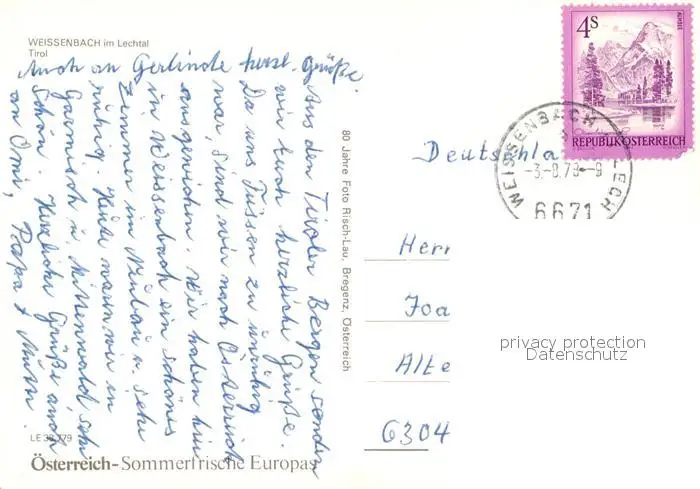 WEISSENBACH im Lechtal
Tirol
Auch an Gerlinde herzl. Grüße.
Aus den Tiroler Bergen senden
wir Euch herzliche Grüße.
Da uns Füssen zu unruhig
war, sind wir nach Österreich
ausgewichen. Wir haben hier
in Weissenbach ein schönes
Zimmer im Neubau u. sehr
ruhig. Heute waren wir in
Garmisch u. Mittenwald sehr
schön. Herzliche Grüße auch
an Omi, Papa + Mutti.
80 Jahre Foto Risch-Lau, Bregenz, Österreich
LE
Österreich-Sommerfrische Europas
4S
ALMSEE
REPUBLIK ÖSTERREICH
WEISSENBACH LECH
-3.-8.79-9
6671
Deutschla
Herr
Joa
Alte
6304
privacy protection
Datenschutz